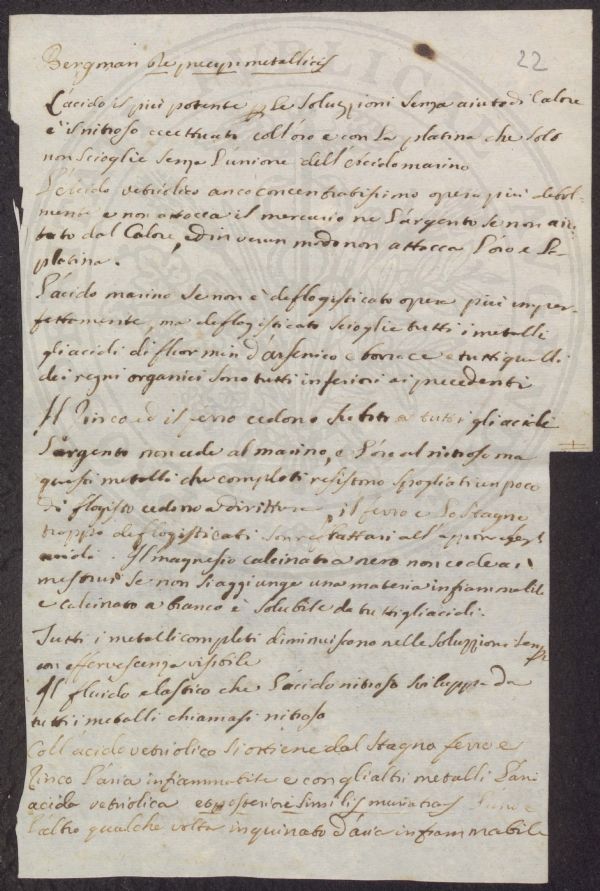 22
Bergman de precip. metallicis
L'acido il più potente p le soluzioni senza aiuto di calore
è il nitroso eccettuati coll'oro e con la platina che solo
non scioglie senza l'unione dell'acido marino
L'acido vetriolico anco concentratissimo opera più debol-
mente e non attacca il mercurio ne l'argento se non aiu-
tato dal Calore, ed in verun modo non attacca l'oro e la
platina.
L'acido marino se non è deflogisticato opera più imper-
fettamente, ma deflogisticato scioglie tutti i metalli
gli acidi di fluor min d'arsenico e borace e tutti quelli
dei regni organici sono tutti inferiori ai precedenti
Il Zinco ed il ferro cedono subito a tutti gli acidi
L'argento non cede al marino, e l'oro al nitroso ma
questi metalli che completi resistono spogliati un poco
di flogisto cedono a dirittura, il ferro e lo stagno
troppo deflogisticati sono refrattari all'
acidi. Il magnesio calcinato a nero non cede ai
mestrui se non si aggiunge una materia infiammabile
e calcinato a bianco è solubile da tutti gli acidi.
Tutti i metalli completi diminuiscono nelle soluzioni
con effervescenza visibile
Il fluido elastico che l'acido nitroso sviluppa da
tutti i metalli chiamasi nitroso
Coll'acido vetriolico si ottiene dal stagno ferro e
Zinco l'aria infiammabile e con gli altri metalli l'aria
acida vetriolica et posteriori similis muriatica l'uno e
l'altro qualche volta inquinato d'aria infiammabile